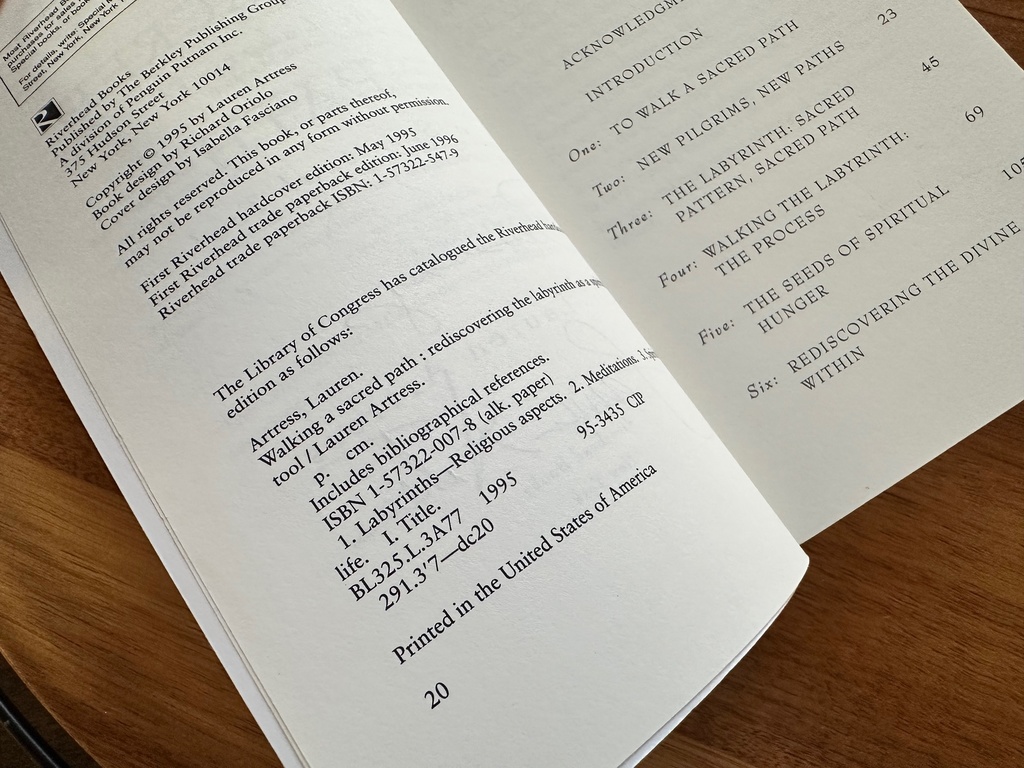 Most Riverhead B
purchases for sales
Special books, or book
For details, write: Special
Street, New York, New York
2
Riverhead Books
Published by The Berkley Publishing Group
A division of Penguin Putnam Inc.
375 Hudson Street
New York, New York 10014
Copyright © 1995 by Lauren Artress
Book design by Richard Oriolo
Cover design by Isabella Fasciano
All rights reserved. This book, or parts thereof,
may not be reproduced in any form without permission.
First Riverhead hardcover edition: May 1995
First Riverhead trade paperback edition: June 1996
Riverhead trade paperback ISBN: 1-57322-547-9
The Library of Congress has catalogued the Riverhead
edition as follows:
Artress, Lauren.
Walking a sacred path : rediscovering the labyrinth as a
tool / Lauren Artress.
p. cm.
Includes bibliographical references.
ISBN 1-57322-007-8 (alk. paper)
1. Labyrinths—Religious aspects. 2. Meditations.
life. I. Title.
BL325.L.3A77 1995
291.3'7—dc20
95-3435 CIP
Printed in the United States of America
20
ACKNOWLEDGM
INTRODUCTION
One: TO WALK A SACRED PATH
23
Two: NEW PILGRIMS, NEW PATHS
45
Three: THE LABYRINTH: SACRED
PATTERN, SACRED PATH
69
Four: WALKING THE LABYRINTH:
THE PROCESS
Five: THE SEEDS OF SPIRITUAL
HUNGER
Six: REDISCOVERING THE DIVINE
WITHIN